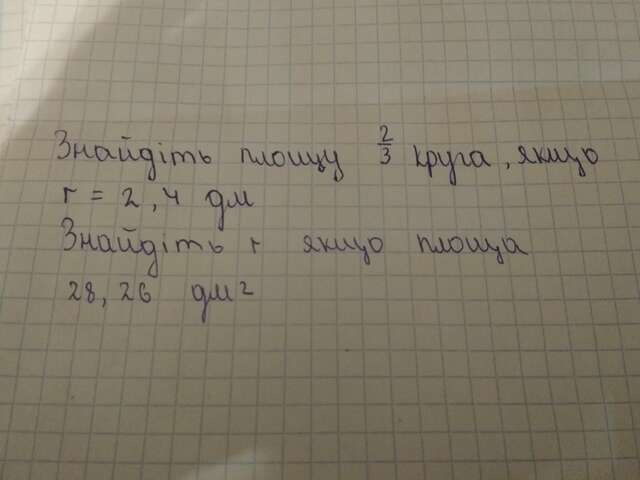 Знайдіть площу 2/3 круга, якщо
r = 2,4 дм
Знайдіть r якщо площа
28,26 дм²